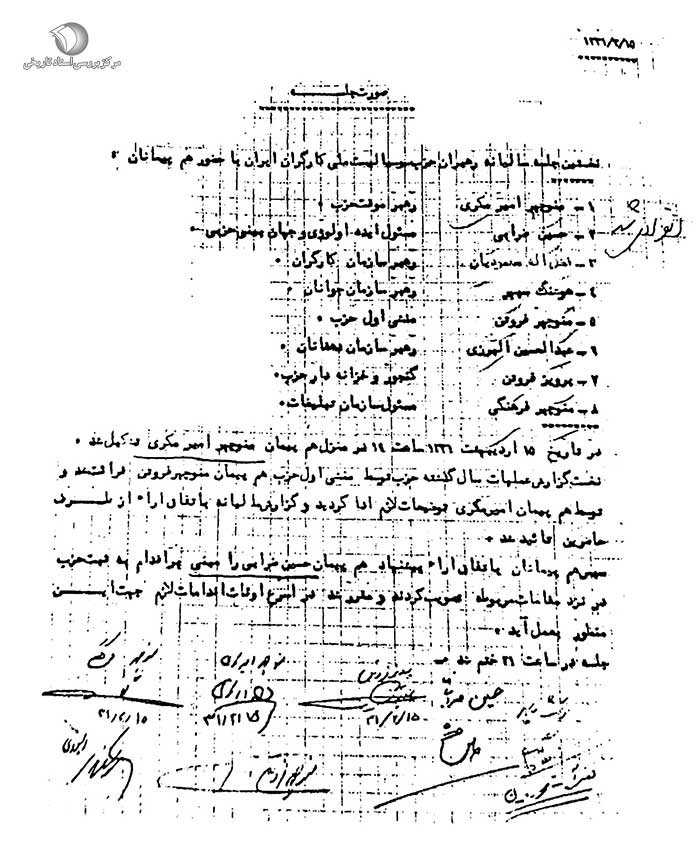 مرکز بررسی اسناد تاریخی
۱۳۳۱/۲/۱۵
صورت جلسه
نخستین جلسه سالیانه رهبران حزب سوسیالیست ملی کارگران ایران با حضور هم پیمانان .
۱ - منوچهر امیر مکری رهبر موقت حزب .
۲ - حسین ضرابی مسئول ایده اولوژی و جهان بینی حزبی .
۳ - رهبر سازمان کارگران .
۴ - هوشنگ سپهر رهبر سازمان جوانان .
۵ - منوچهر فروتن منشی اول حزب .
۶ - عبدالحسین البرزی رهبر سازمان دهقانان .
۷ - پرویز فروتن گنجور و خزانه دار حزب .
۸ - منوچهر فرهنگی مسئول سازمان تبلیغات .
در تاریخ ۱۵ اردیبهشت ۱۳۳۱ ساعت ۱۹ در منزل هم پیمان منوچهر امیر مکری تشکیل شد .
نخست گزارش عملیات سال گذشته حزب توسط منشی اول حزب هم پیمان منوچهر فروتن قرائت شد و
توسط هم پیمان امیر مکری توضیحات لازم ادا گردید و گزارش سالیانه باتفاق اراء از طرف
حاضرین تائید شد .
سپس هم پیمانان باتفاق اراء پیشنهاد هم پیمان حسین ضرابی را مبنی بر اقدام به ثبت حزب
در نزد مقامات مربوطه تصویب کردند و مقرر شد در اسرع اوقات اقدامات لازم جهت این
منظور بعمل آید .
جلسه در ساعت ۲۱ ختم شد
حسین ضرابی
۳۱/۲/۱۵
۳۱/۲/۱۵
۳۱/۲/۱۵
البرزی